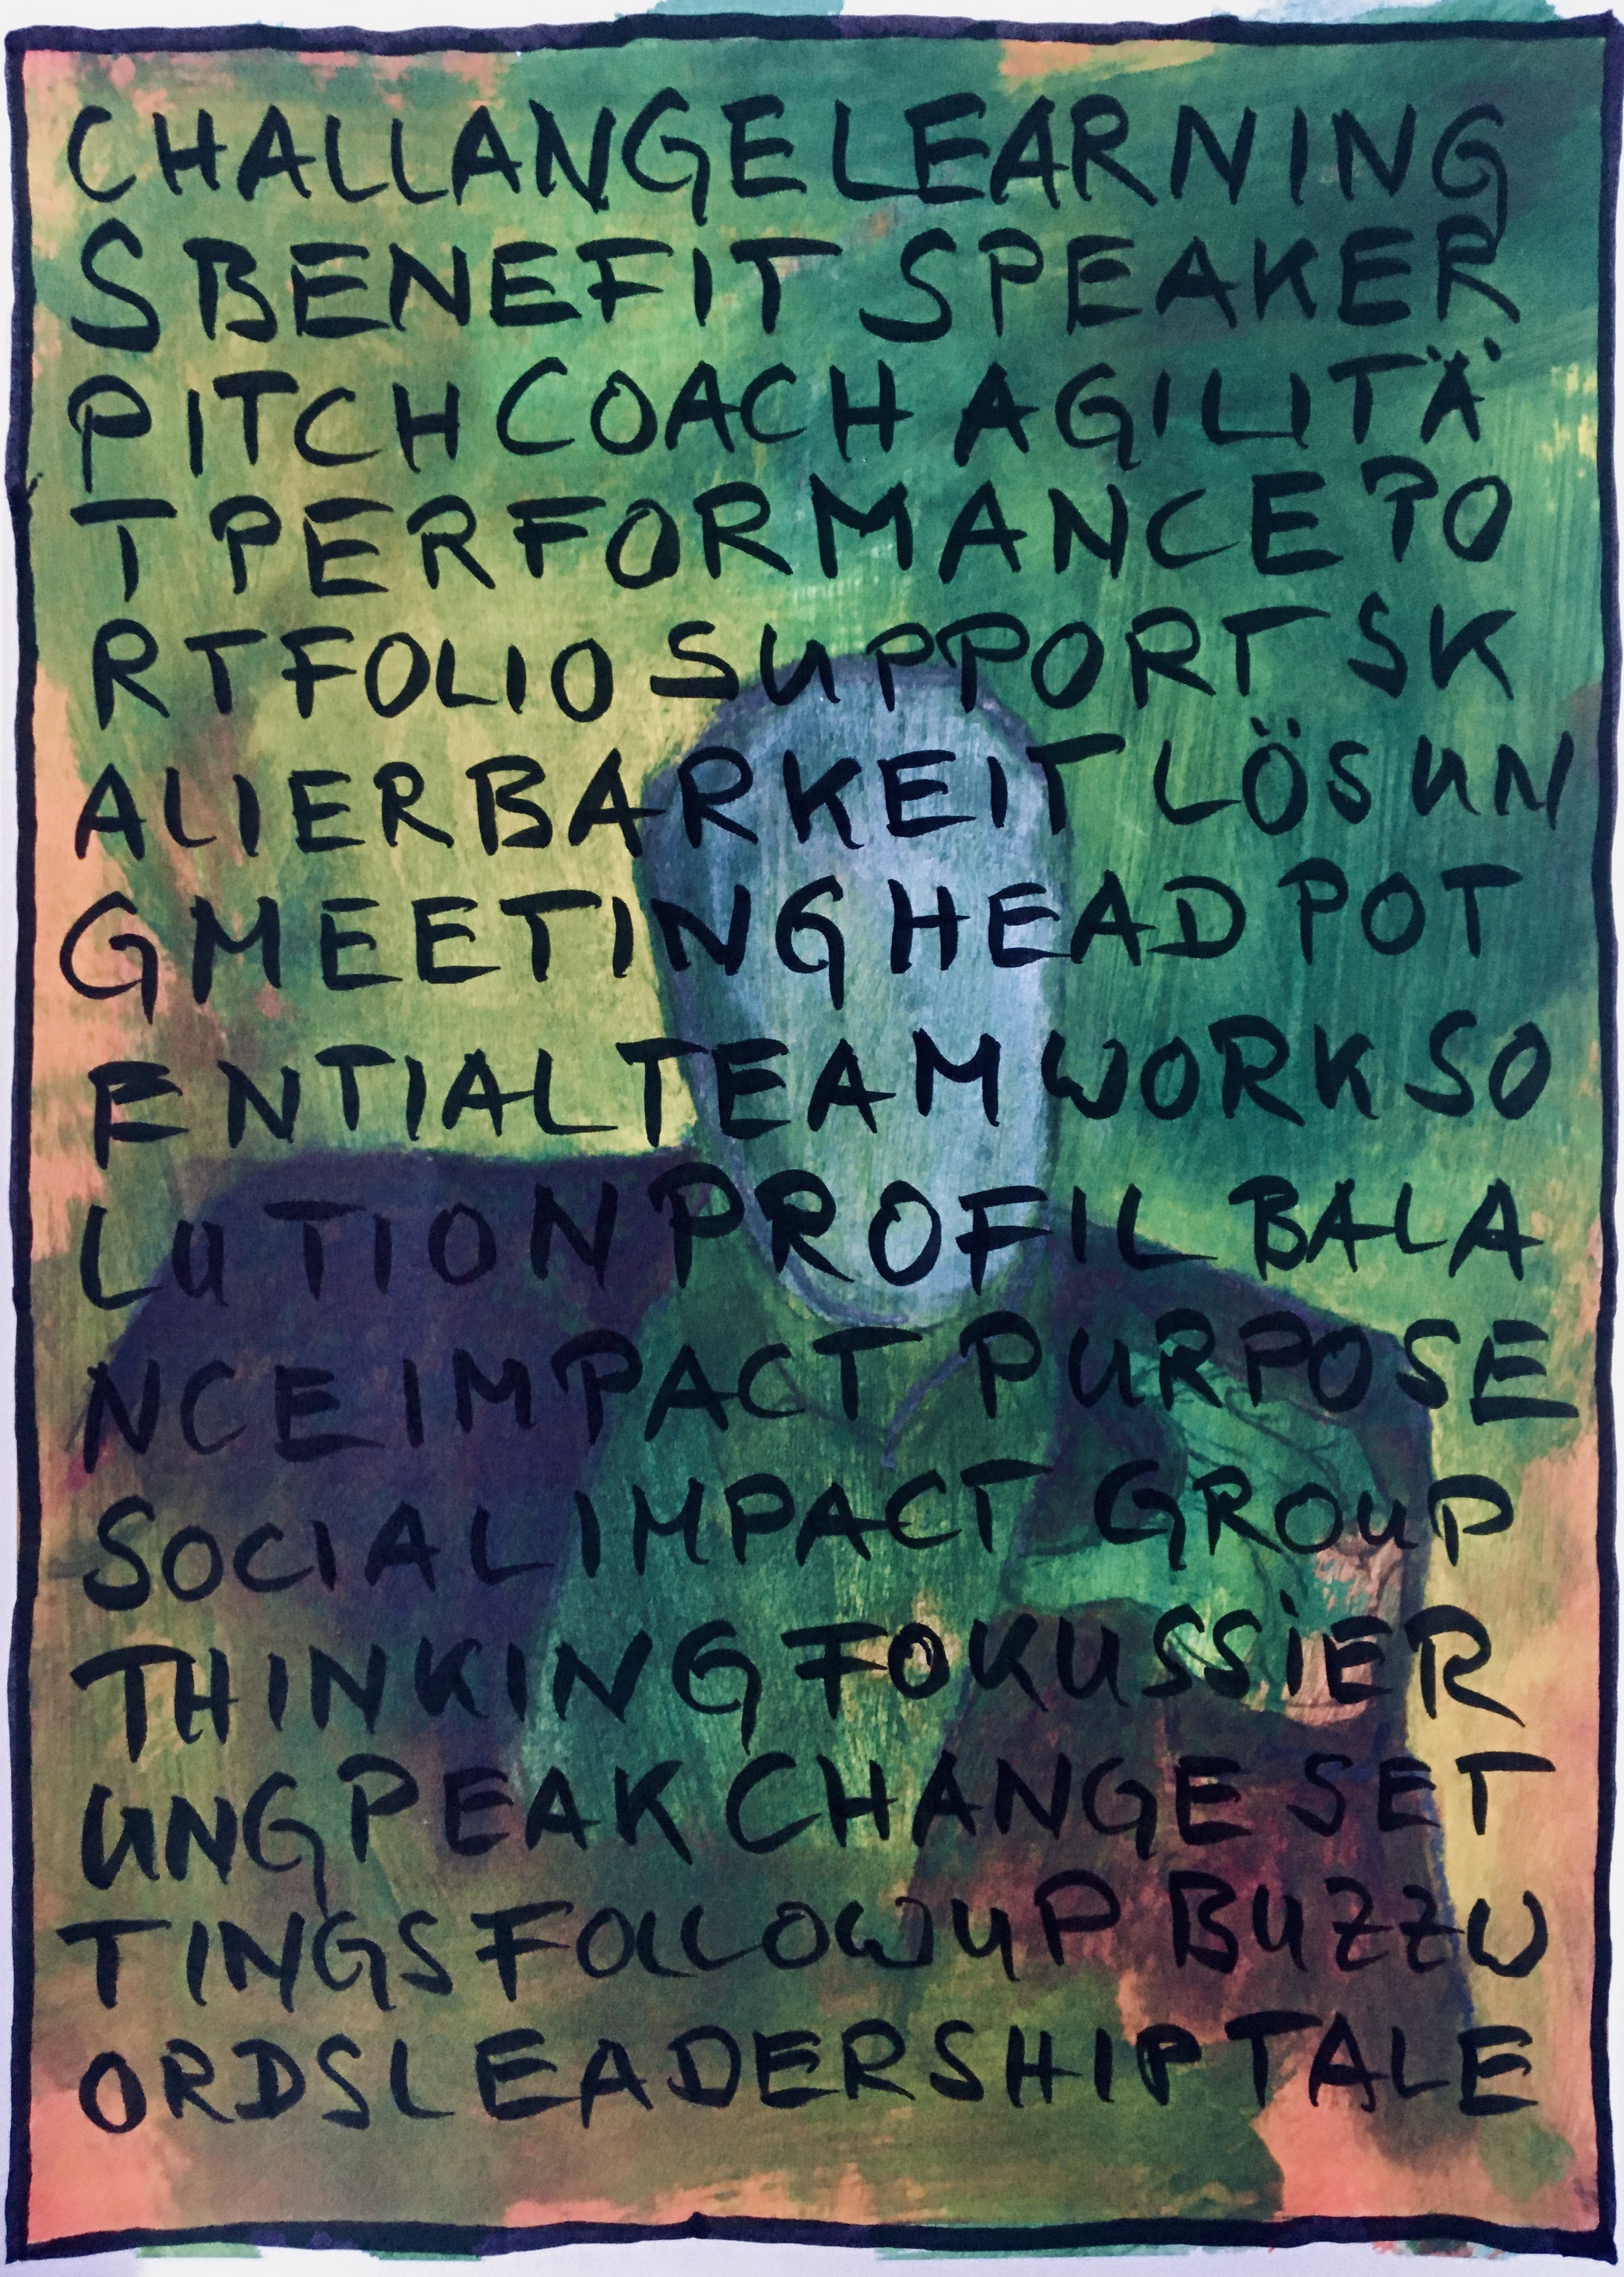 CHALLANGE LEARNING
S BENEFIT SPEAKER
PITCH COACH AGILITÄ
T PERFORMANCE PO
RTFOLIO SUPPORT SK
ALIERBARKEIT LÖSUN
G MEETING HEAD POT
ENTIAL TEAMWORK SO
LUTION PROFIL BALA
NCE IMPACT PURPOSE
SOCIAL IMPACT GROUP
THINKING FOKUSSIER
UNG PEAK CHANGE SET
TINGS FOLLOW UP BUZZW
ORDS LEADERSHIP TALE